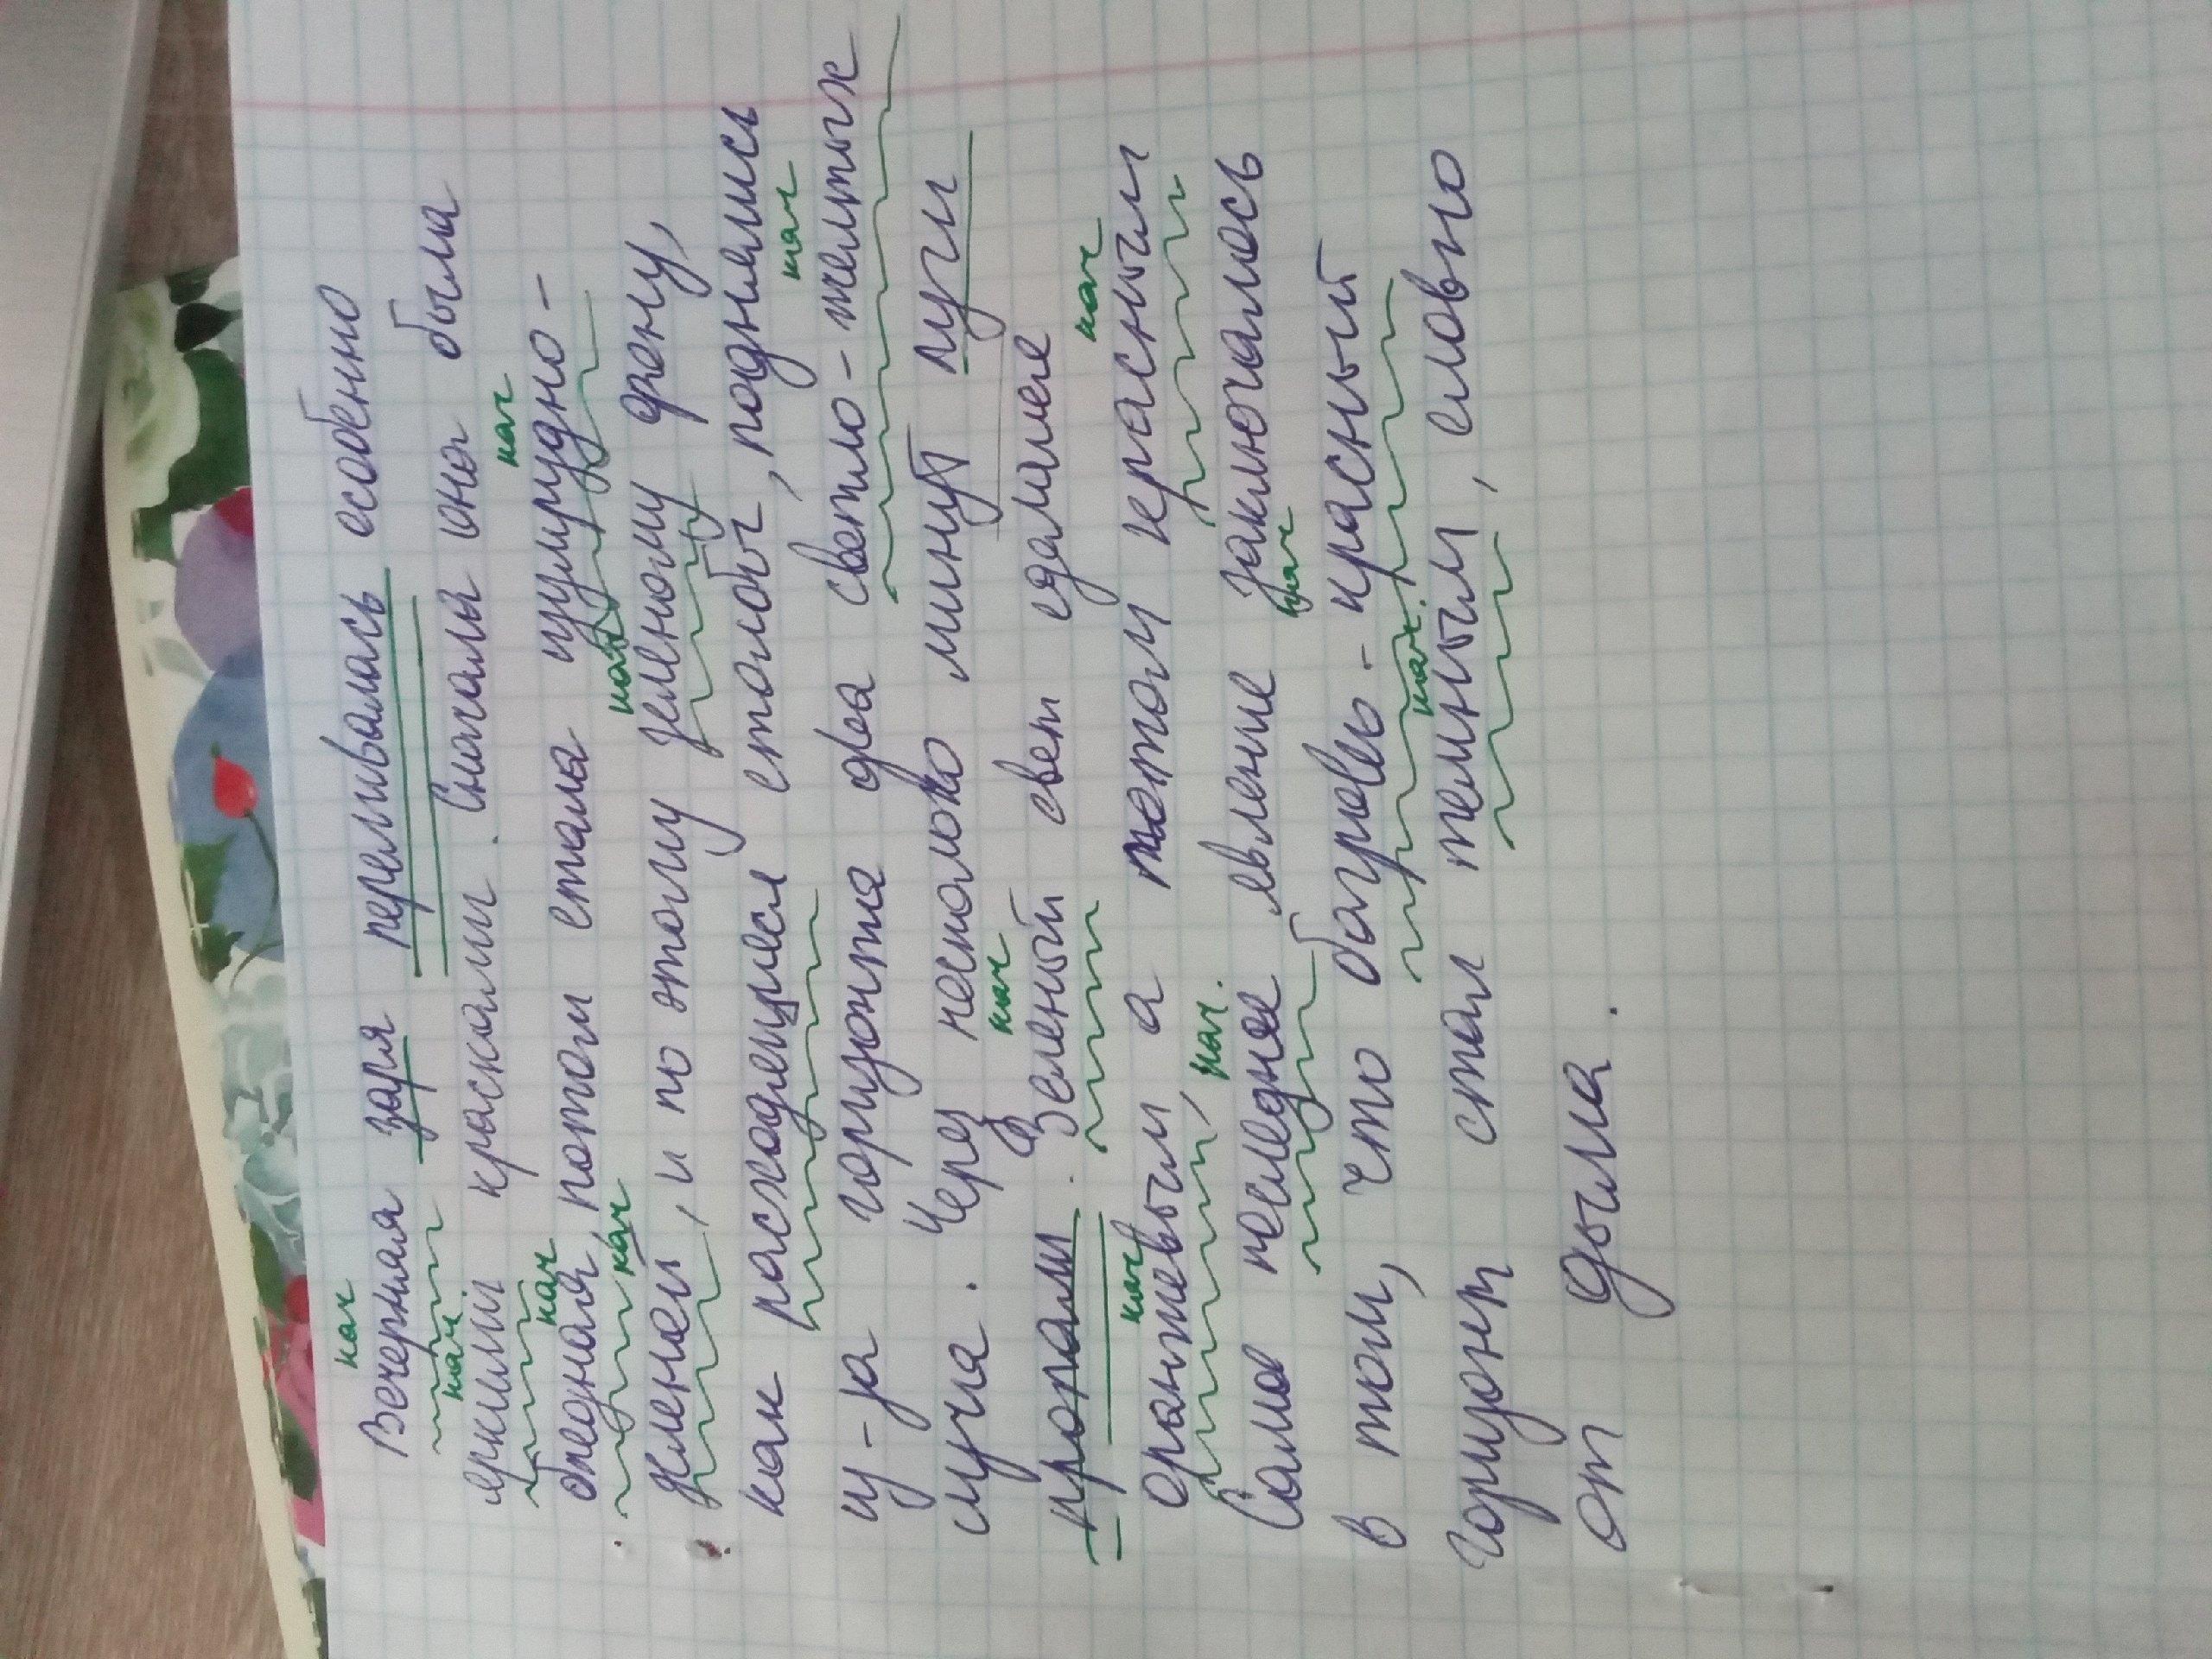 кач
Вечерняя заря переливалась особенно
кач
яркими красками. Сначала она была
кач кач
бледная, потом стала изумрудно-
кач кач
зеленой, и по этому зеленому фону,
как расходящиеся столбы, поднялись
кач
из-за горизонта два светло-желтых
луча. Через несколько минут лучи
кач
пропали. Зеленый свет сделался
кач кач
оранжевым, а потом красным
кач.
Самое последнее явление заключалось
кач
в том, что багровь-красный
кач.
горизонт стал темным, словно
от дыма.